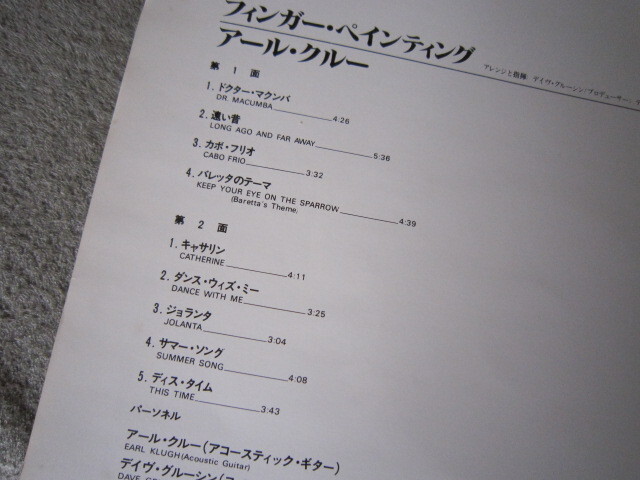 フィンガー・ペインティング
アール・クルー
アレンジと指揮：デイヴ・グルーシン/プロデューサー：
第 1 面
1. ドクター・マクンバ
DR. MACUMBA 4:26
2. 遠い昔
LONG AGO AND FAR AWAY 5:36
3. カボ・フリオ
CABO FRIO 3:32
4. バレッタのテーマ
KEEP YOUR EYE ON THE SPARROW 4:39
(Baretta's Theme)
第 2 面
1. キャサリン
CATHERINE 4:11
2. ダンス・ウィズ・ミー
DANCE WITH ME 3:25
3. ジョランタ
JOLANTA 3:04
4. サマー・ソング
SUMMER SONG 4:08
5. ディス・タイム
THIS TIME 3:43
パーソネル
アール・クルー(アコースティック・ギター)
EARL KLUGH(Acoustic Guitar)
デイヴ・グルーシン(
DAVE